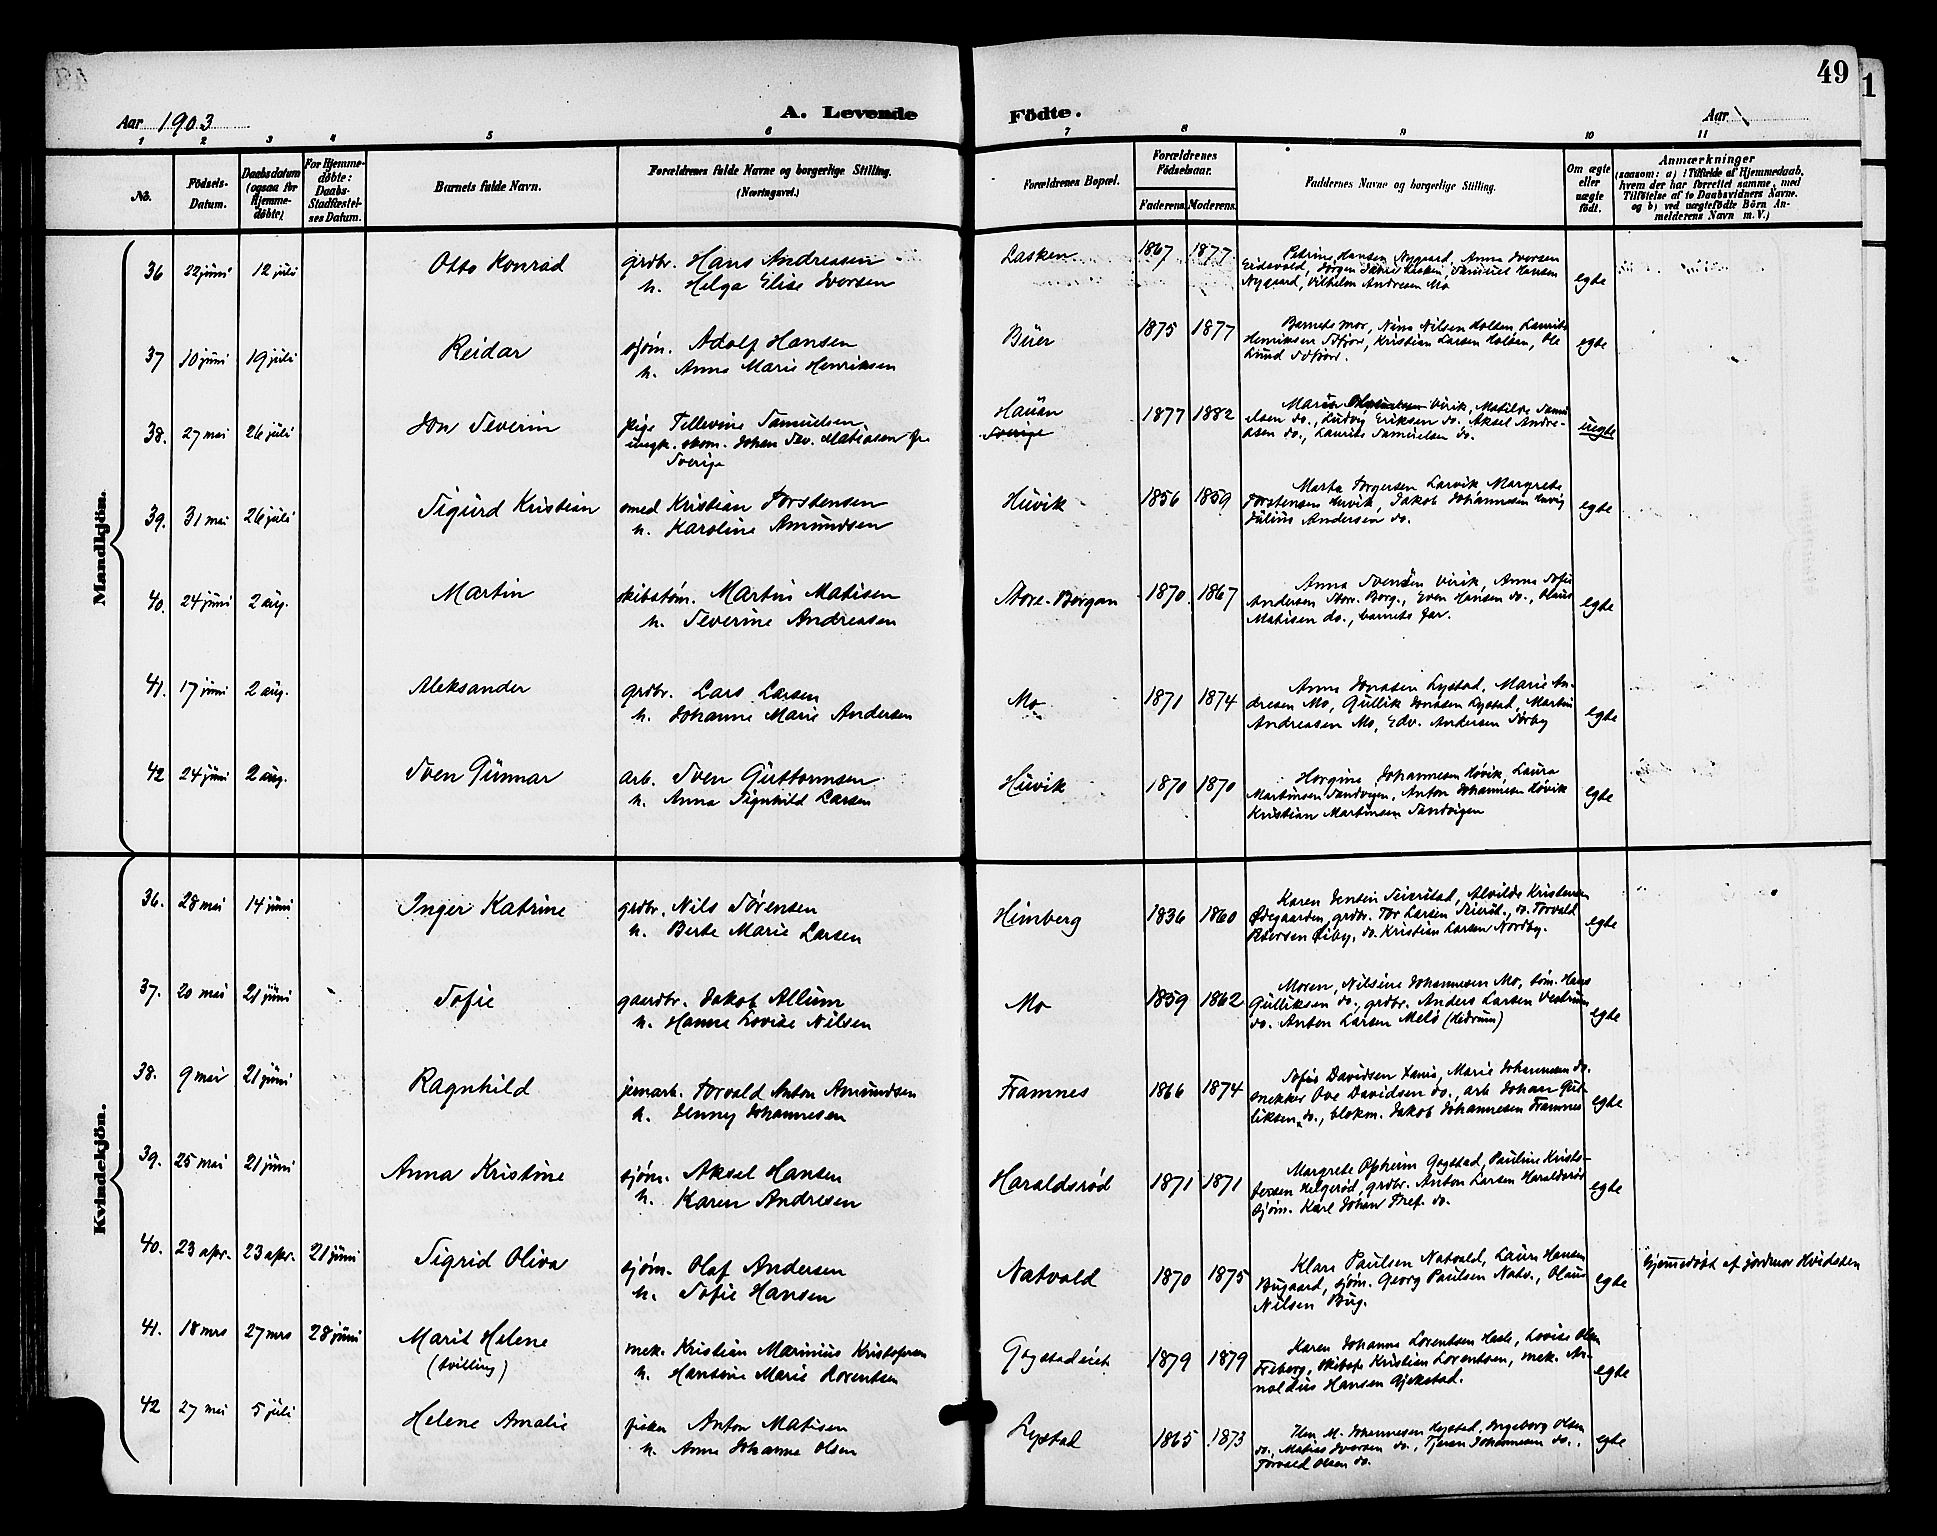 49
Aar 1903
A. Levende
Födte.
Aar
1 2 3 4 5 6 7 8 9 10 11
No.
Födsels-Datum.
Daabsdatum (ogsaa for Hjemme-döbte)
For Hjemme-döbte: Daabs-Stadfæstel-ses Datum.
Barnets fulde Navn.
Forældrenes fulde Navne og borgerlige Stilling. (Næringsvei.)
Forældrenes Bopæl.
Forældrenes Födselsaar.
Faderens. Moderens.
Faddernes Navne og borgerlige Stilling.
Om ægte eller uægte födt.
Anmærkninger
(saasom: a) i Tilfælde af Hjemmedaab, hvem der har forrettet samme, med Tilföielse af to Daabsvidners Navne. og b) ved uægtefödte Börn An-melderens Navn m. V.)
Mandkjön.
36 22 juni 12 juli Otto Konrad grdbr. Hans Andreasen
h. Helga Elise Iversen
Lasken 1867 1877 Petrine Hansen Nygaard, Anna Iversen
Eidsvold, Jörgen Lasken, Samuel Hansen
Nygaard, Vilhelm Andresen Mo
egte
37 10 juni 19 juli Reidar sjöm. Adolf Hansen
h. Anna Marie Henriksen
Büer 1875 1877 Barnets mor, Nina Nilsen Holsen, Laurits
Henriksen, Kristian Larsen Holsen, Ole
Lund
egte
38. 27 mai 26 juli Jon Severin pige Tellevine Samuelsen,
ungk. skom. Johan Sev. Matiasen fr.
Sverige
Hauan
Sverige
1877 1882 Virik, Matilde Samu
elsen do., Ludvig Eriksen do. Aksel Andre-
asen do., Laurits Samuelsen do.
uegte
39. 31 mai 26 juli Sigurd Kristian smed Kristian Torstensen
h. Karoline Amundsen
Huvik 1856 1859 Marta Torgersen Larvik, Margrete
Torstensen Huvik, Jakob Johannesen Huvig
Julius Andersen do.
egte
40. 24 juni 2 aug. Martin skibstöm. Martin Matisen
h. Severine Andreasen
Store-Bergan 1870 1867 Anna Svensen Virik, Anna Sofie
Andersen Store-Berg., Even Hansen do., Olaus
Matisen do., barnets far.
egte
41. 17 juni 2 aug. Aleksander grdbr. Lars Larsen
h. Johanne Marie Andersen
Mo 1871 1874 Anna Jonasen Lystad, Marie An-
dresen Mo, Gullik Jonasen Lystad, Martin
Andreasen Mo, Edv. Andersen Sörby
egte
42 24 juni 2 aug. Sven Gunnar arb. Sven Guttormsen
h. Anna Signhild Larsen
Huvik 1870 1870 Horgine Johannesen Hövik, Laura
Martinsen Sandvigen, Anton Johannesen Hövik
Kristian Martinsen Sandvigen
egte
Kvindekjön.
36. 28 mai 14 juni Inger Katrine grdbr. Nils Sörensen
h. Berte Marie Larsen
Himberg 1836 1860 Karen Jensen Seierstad, Alvilde Kristensen
Ödegaarden, grdbr. Tor Larsen Seierst., do. Torvald
Pedersen Öiby, do. Kristian Larsen Nordby.
egte
37. 20 mai 21 juni Sofie gaardbr. Jakob Allum
h. Hanna Lovise Nilsen
Mo 1859 1862 Moren, Nilsine Johannesen Mo, töm. Hans
Gulliksen do., grdbr. Anders Larsen Vestrum
do. Anton Larsen Melö (Hedrum)
egte
38. 9 mai 21 juni Ragnhild jernarb. Torvald Anton Amundsen
h. Jenny Johannesen
Framnes 1866 1874 Sofie Davidsen, Marie Johannesen do.
snekker Ove Davidsen do., arb. Johan Gul-
liksen do., blokm. Jakob Johannesen Framnes
egte
39. 25 mai 21 juni Anna Kristine sjöm. Aksel Hansen
h. Karen Andresen
Haraldsröd 1871 1871 Margrete Opheim Gogstad, Pauline Kristo-
fersen Helgeröd, grdbr. Anton Larsen Haraldsröd
sjöm. Karl Johan do.
egte
40. 23 apr. 23 apr. 21 juni Sigrid Oliva sjöm. Olaf Andersen
h. Sofie Hansen
Natvald 1870 1875 Klara Paulsen Natvald, Laura Hansen
Bugaard, sjöm. Georg Paulsen Natv., Olaus
Nilsen Bug.
egte
hjemedöbt af jordmor Hvidsten
41. 18 mrs 27 mrs 28 juni Marit Helene
(tvilling)
mek. Kristian Marinius Kristofersen
h. Hansine Marie Lorentsen
Gogstadeiet 1879 1879 Karen Johanne Lorentsen Hasle, Lovise Olsen
Freberg, skibst. Kristian Lorentsen, mek. Ar-
noldus Hansen Gjekstad.
egte
42 27 mai 5 juli Helene Amalie fisker Anton Matisen
h. Anna Johanne Olsen
Lystad 1865 1873 M. Johannesen Lystad, Ingeborg Olsen
do. Matias Iversen do., Johannesen do.,
Torvald Olsen do.
egte